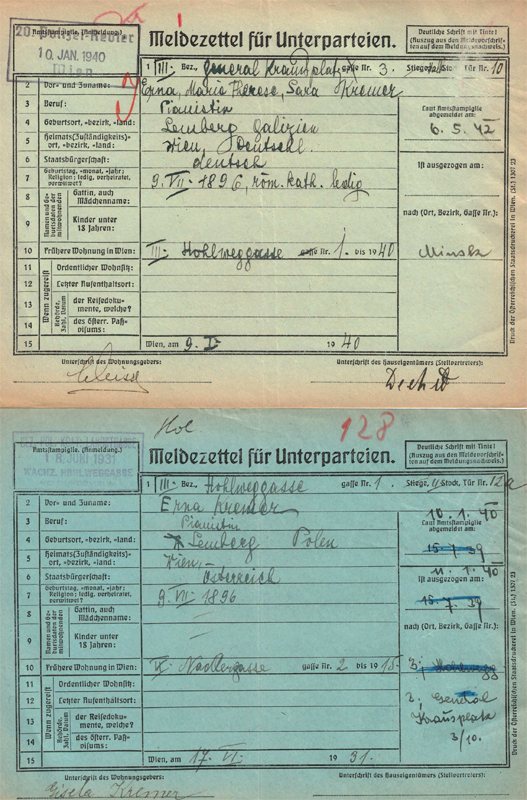 20. Polizei-Revier
10. JAN. 1940
Wien
Amtsstampiglie. (Anmeldung.)
Meldezettel für Unterparteien.
Deutsche Schrift mit Tinte!
(Auszug aus den Meldevorschrif-
ten auf dem Meldungsnachweis.)
1 III. Bez., General Krausplatz gasse Nr. 3. Stiege, Stock, Tür Nr. 10
2 Vor- und Zuname: Erna, Maria Therese, Sara Kremer
3 Beruf: Pianistin
Laut Amtsstampiglie
abgemeldet am:
6. 5. 42
4 Geburtsort, -bezirk, -land: Lemberg Galizien
5 Heimats(Zuständigkeits)-
ort, -bezirk, -land: Wien, Deutschl.
6 Staatsbürgerschaft: deutsch
ist ausgezogen am:
7 Geburtstag, -monat, -jahr;
Religion; ledig, verheiratet,
verwitwet? 9. VII. 1896, röm. kath. ledig
8 Namen und Ge-
burtsdaten der
mitwohnenden
Gattin, auch
Mädchenname:
nach (Ort, Bezirk, Gasse Nr.):
9 Kinder unter
18 Jahren:
10 Frühere Wohnung in Wien: III. Hohlweggasse gasse Nr. 1. bis 1940
Minsk
11 Wenn zugereist
Ordentlicher Wohnsitz:
12 Letzter Aufenthaltsort:
13 Behörde,
Zahl, Datum
der Reisedoku-
mente, welche?
14 des österr. Paß-
visums:
15 Wien, am 9. I. 1940
Druck der Österreichischen Staatsdruckerei in Wien. (St.) 1307 23
Unterschrift des Wohnungsgebers:
Unterschrift des Hauseigentümers (Stellvertreters):
Hol
128
18. JUNI 1931
WACHZ. HOHLWEGGASSE
Amtsstampiglie. (Anmeldung.)
Meldezettel für Unterparteien.
Deutsche Schrift mit Tinte!
(Auszug aus den Meldevorschrif-
ten auf dem Meldungsnachweis.)
1 III. Bez., Hohlweggasse gasse Nr. 1. Stiege, 4 Stock, Tür Nr. 12a
2 Vor- und Zuname: Erna Kremer
10. 1. 40
3 Beruf: Pianistin
Laut Amtsstampiglie
abgemeldet am:
15. 7. 39
4 Geburtsort, -bezirk, -land: Lemberg Polen
5 Heimats(Zuständigkeits)-
ort, -bezirk, -land: Wien, –
11. 1. 40
6 Staatsbürgerschaft: Österreich
ist ausgezogen am:
15. 7. 39
7 Geburtstag, -monat, -jahr;
Religion; ledig, verheiratet,
verwitwet? 9. VII. 1896
8 Namen und Ge-
burtsdaten der
mitwohnenden
Gattin, auch
Mädchenname:
nach (Ort, Bezirk, Gasse Nr.):
9 Kinder unter
18 Jahren:
10 Frühere Wohnung in Wien: IX. Nadlergasse gasse Nr. 2 bis 1915.
11 Wenn zugereist
Ordentlicher Wohnsitz:
12 Letzter Aufenthaltsort:
General
Krausplatz
3/10.
13 Behörde,
Zahl, Datum
der Reisedoku-
mente, welche?
14 des österr. Paß-
visums:
15 Wien, am 17. VI. 1931.
Druck der Österreichischen Staatsdruckerei in Wien. (St.) 1307 23
Unterschrift des Wohnungsgebers:
Unterschrift des Hauseigentümers (Stellvertreters):
Gisela Kremer